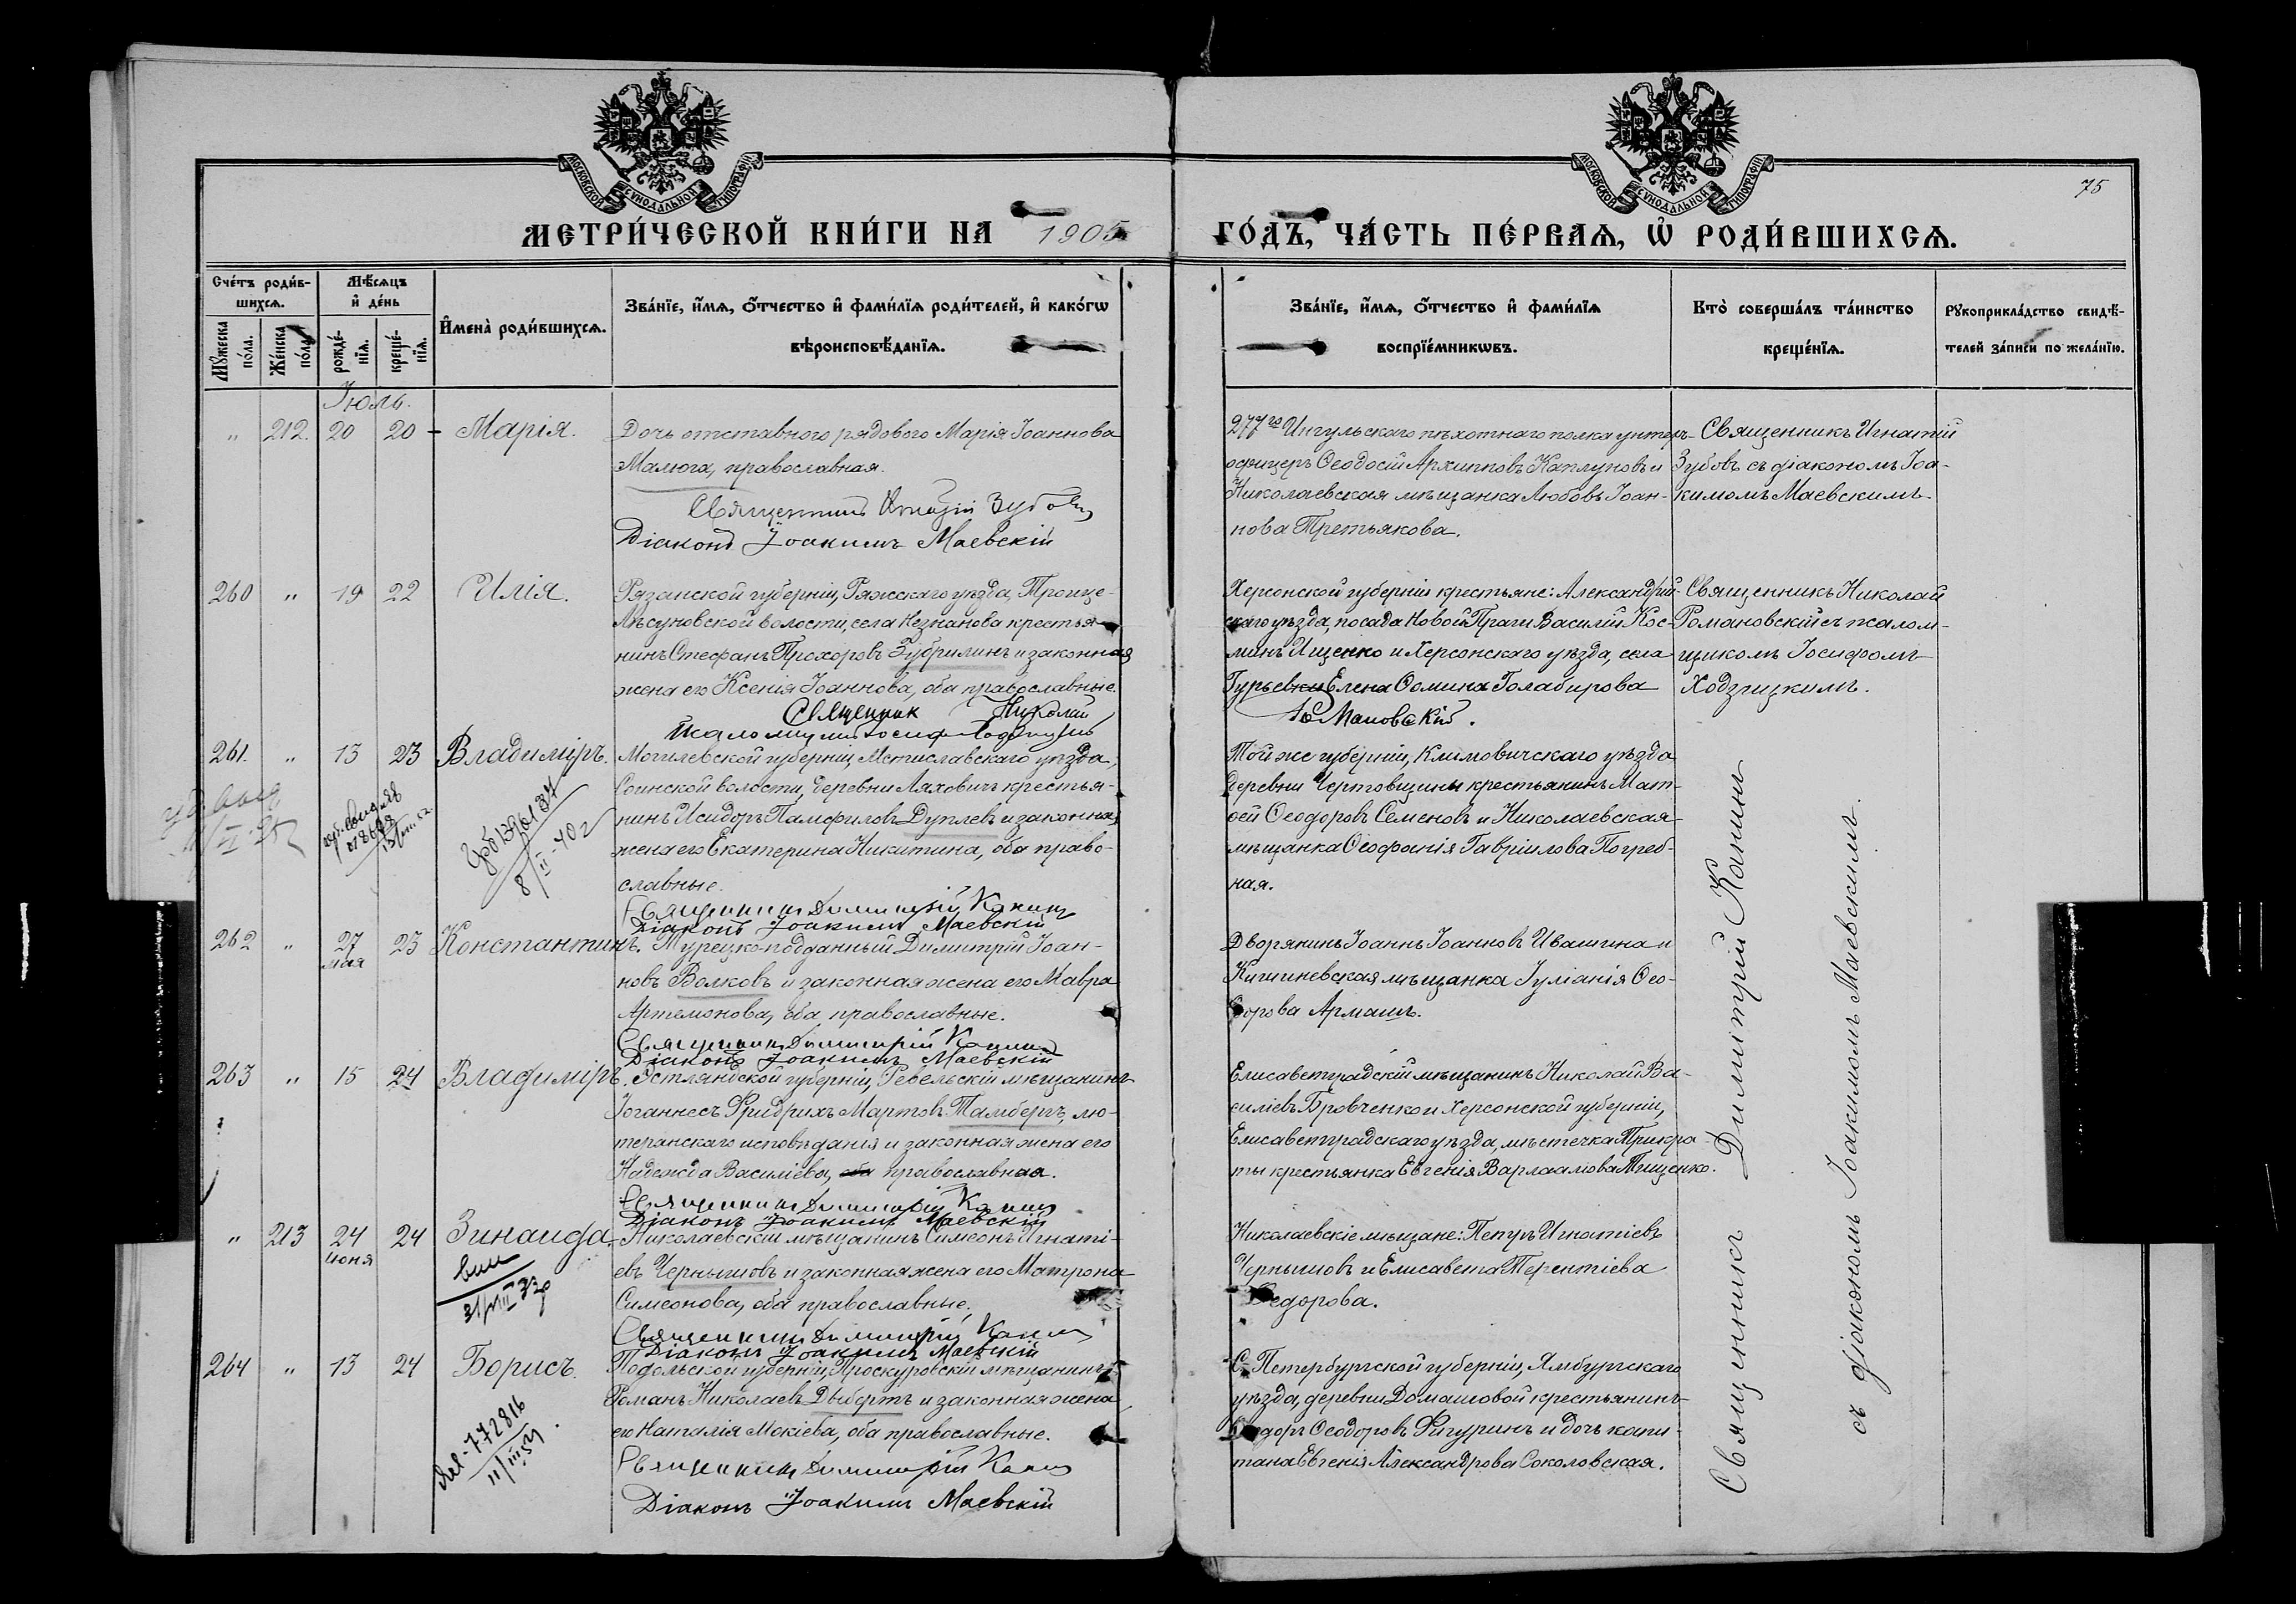 МОСКОВСКОЙ СѴНОДАЛЬНОЙ ТИПОГРАФІИ
МОСКОВСКОЙ СѴНОДАЛЬНОЙ ТИПОГРАФІИ
75
МЕТРИ́ЧЕСКОЙ КНИ́ГИ НА 1905 ГО́ДЪ, ЧА́СТЬ ПЕ́РВАѦ, Ѡ҆ РОДИ́ВШИХСѦ.
Сче́тъ роди́в-
шихсѧ.
Мꙋ́жеска
по́ла.
Же́нска
по́ла.
Мѣ́сѧцъ
и҆ де́нь
рожде́-
нїѧ.
креще́-
нїѧ.
И҆мена̀ роди́вшихсѧ.
Зва́нїе, и҆́мѧ, ѻ҆́тчество и҆ фами́лїѧ роди́телей, и҆ како́гѡ
вѣроисповѣ́данїѧ.
Зва́нїе, и҆́мѧ, ѻ҆́тчество и҆ фами́лїѧ
воспрїе́мникѡвъ.
Кто̀ соверша́лъ та́инство
креще́нїѧ.
Рꙋкоприкла́дство свидѣ́-
телей за́писи по жела́нїю.
Іюль.
" 212. 20 20 Марія.
Дочь отставного рядового Марія Іоаннова
Малюга, православная.
Священникъ Игнатій Зубовъ
Діаконъ Іоакимъ Маевскій
277го Ингульскаго пѣхотнаго полка унтеръ-
офицеръ Ѳеодосій Архиповъ Каплуновъ и
Николаевская мѣщанка Любовь Іоан-
нова Третьякова.
Священникъ Игнатій
Зубовъ съ діакономъ Іоа-
кимомъ Маевскимъ.
260 " 19 22 Илія.
Рязанской губерніи, Ряжскаго уѣзда, Троице-
Лѣсуновской волости, села Незнанова крестья-
нинъ Стефанъ Прохоровъ Зубрилинъ и законная
жена его Ксенія Іоаннова, оба православные.
Священник Николай
Романовскій.
Псаломщикъ Іосифъ Ходзицкій
Херсонской губерніи крестьяне: Александрій-
скаго уѣзда, посада Новой Праги Василій Кос-
минъ Ищенко и Херсонскаго уѣзда, села
Гурьевки Елена Ѳомина Голабирова
Священникъ Николай
Романовскій съ псалом-
щикомъ Іосифомъ
Ходзицкимъ.
261. " 13 23 Владиміръ.
8/II-40 г
Могилевской губерніи, Мстиславскаго уѣзда,
Соинской волости, деревни Ляховичъ крестья-
нинъ Исидоръ Памфиловъ Дуплевъ и законная
жена его Екатерина Никитина, оба право-
славные.
Священникъ Димитрій Канинъ
Діаконъ Іоакимъ Маевскій
Той же губерніи, Климовичскаго уѣзда
деревни Чертовщины крестьянинъ Мат-
ѳей Ѳеодоровъ Семеновъ и Николаевская
мѣщанка Ѳеофанія Гавріилова Погреб-
ная.
262 " 27 мая 23 Константинъ.
Турецко-подданный Димитрій Іоан-
новъ Волковъ и законная жена его Мавра
Артемонова, оба православные.
Священникъ Димитрій Канинъ
Діаконъ Іоакимъ Маевскій
Дворянинъ Іоаннъ Іоанновъ Ивашина и
Кишиневская мѣщанка Іуліанія Ѳео-
дорова Армашъ.
263 " 15 24 Владиміръ.
Эстляндской губерніи, Ревельскій мѣщанинъ
Іоганнесъ Фридрихъ Мартовъ Тамбергъ, лю-
теранскаго исповѣданія и законная жена его
Надежда Василіева, оба православная.
Священникъ Димитрій Канинъ
Діаконъ Іоакимъ Маевскій
Елисаветградскій мѣщанинъ Николай Ва-
силіевъ Бровченко и Херсонской губерніи,
Елисаветградскаго уѣзда, мѣстечка Трикра-
ты крестьянка Евгенія Варлаамова Тищенко.
" 213 24 іюня 24 Зинаида.
Николаевскій мѣщанинъ Симеонъ Игнаті-
евъ Чернышовъ и законная жена его Матрона
Симеонова, оба православные.
Священникъ Димитрій Канинъ
Діаконъ Іоакимъ Маевскій
Николаевскіе мѣщане: Петръ Игнатіевъ
Чернышовъ и Елисавета Терентіева
Ѳедорова.
264 " 13 24 Борисъ.
772816
11/III 54
Подольской губерніи, Проскуровскій мѣщанинъ
Романъ Николаевъ Дыбертъ и законная жена
его Наталія Мокіева, оба православные.
Священникъ Димитрій Канинъ
Діаконъ Іоакимъ Маевскій
С. Петербургской губерніи, Ямбургскаго
уѣзда, деревни Домашовой крестьянинъ
Ѳеодоръ Ѳеодоровъ Фигуринъ и дочь капи-
тана Евгенія Александрова Соколовская.
Священникъ Димитрій Канинъ
съ діакономъ Іоакимомъ Маевскимъ.